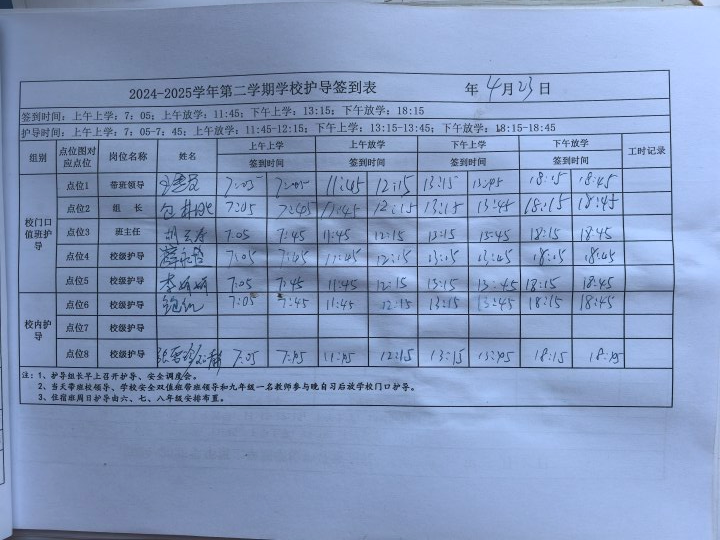 2024-2025学年第二学期学校护导签到表 年 4 月 23 日
签到时间：上午上学：7：05；上午放学：11:45；下午上学：13:15；下午放学：18:15
护导时间：上午上学：7：05-7：45；上午放学：11:45-12:15；下午上学：13:15-13:45；下午放学：18:15-18:45
组别 点位图对应点位 岗位名称 姓名 上午上学 上午放学 下午上学 下午放学 工时记录
签到时间 签到时间 签到时间 签到时间
校门口值班护导
点位1 带班领导 7:05 7:45 11:45 12:15 13:15 13:45 18:15 18:45
点位2 组 长 7:05 7:45 11:45 12:15 13:15 13:45 18:15 18:45
点位3 班主任 7:05 7:45 11:45 12:15 13:15 15:45 18:15 18:45
点位4 校级护导 7:05 7:45 11:45 12:15 13:15 13:45 18:15 18:45
点位5 校级护导 李 7:05 7:45 11:45 12:15 13:15 13:45 18:15 18:45
校内护导
点位6 校级护导 7:05 7:45 11:45 12:15 13:15 13:45 18:15 18:45
点位7 校级护导
点位8 校级护导 7:05 7:45 11:45 12:15 13:15 13:45 18:15 18:45
注：1、护导组长早上召开护导、安全调度会。
2、当天带班校领导、学校安全双值班带班领导和九年级一名教师参与晚自习后放学校门口护导。
3、住指班周日护导由六、七、八年级安排布置。